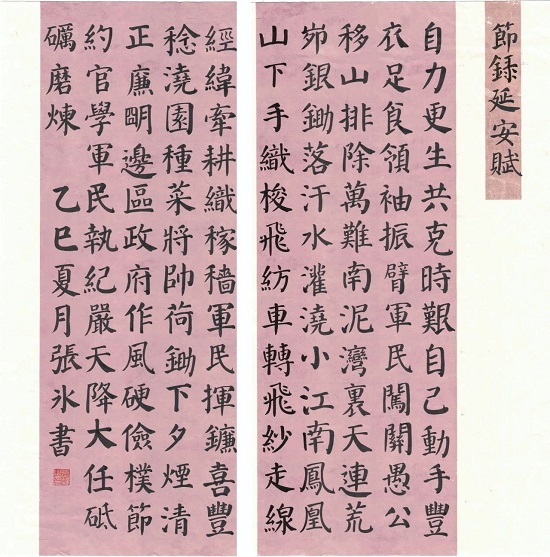 節録延安賦
自力更生共克時艱自己動手豐
衣足食領袖振臂軍民闖關愚公
移山排除萬難南泥灣裏天連荒
峁銀鋤落汗水灌澆小江南鳳凰
山下手織梭飛紡車轉飛紗走線
經緯牽耕織稼穡軍民揮鐮喜豐
稔澆園種菜將帥荷鋤下夕煙清
正廉眀邊區政府作風硬儉樸節
約官學軍民執紀嚴天降大任砥
礪磨煉 乙巳夏月張氷書